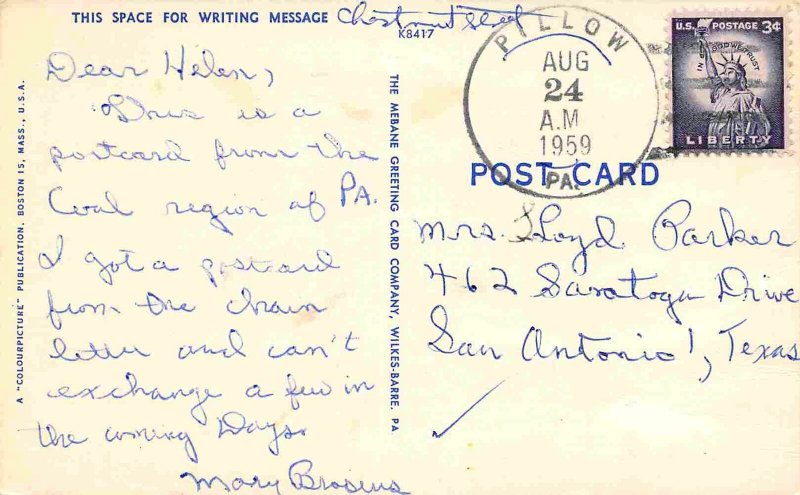 THIS SPACE FOR WRITING MESSAGE
Chestnut Street
K8417
Dear Helen,
This is a
postcard from the
Coal region of PA.
I got a postcard
from the chain
letter and can't
exchange a few in
the coming Days.
Mary Brosius
A "COLOURPICTURE" PUBLICATION, BOSTON 15, MASS., U.S.A.
THE MEBANE GREETING CARD COMPANY, WILKES-BARRE, PA
PILLOW
AUG
24
A.M
1959
PA.
U.S. POSTAGE 3¢
IN GOD WE TRUST
LIBERTY
POST CARD
Mrs. Lloyd Parker
462 Saratoga Drive
San Antonio 1, Texas